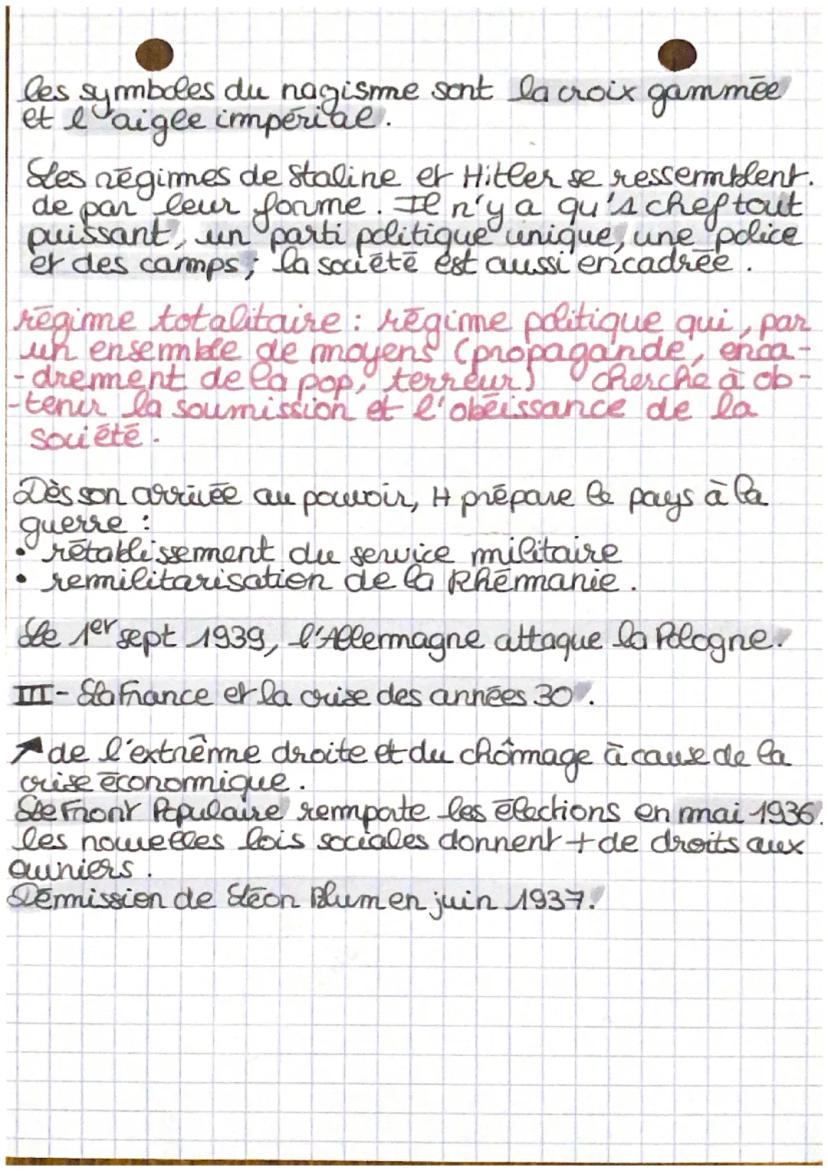 les symboles du nazisme sont la croix gammée
et l'aigle impérial.
Les régimes de Staline et Hitler se ressemblent.
de par leur forme. Il n'y a qu'1 chef tout
puissant, un parti politique unique, une police
et des camps; la société est aussi encadrée.
régime totalitaire : régime politique qui, par
un ensemble de moyens (propagande, enca-
-drement de la pop, terreur) cherche à ob-
-tenir la soumission et l'obéissance de la
société.
Dès son arrivée au pouvoir, H prépare le pays à la
guerre :
• rétablissement du service militaire
• remilitarisation de la Rhénanie.
Le 1er sept 1939, l'Allemagne attaque la Pologne.
III- La France et la crise des années 30.
↗ de l'extrême droite et du chômage à cause de la
crise économique.
Le Front Populaire remporte les élections en mai 1936.
les nouvelles lois sociales donnent + de droits aux
ouvriers.
Démission de Léon Blum en juin 1937.